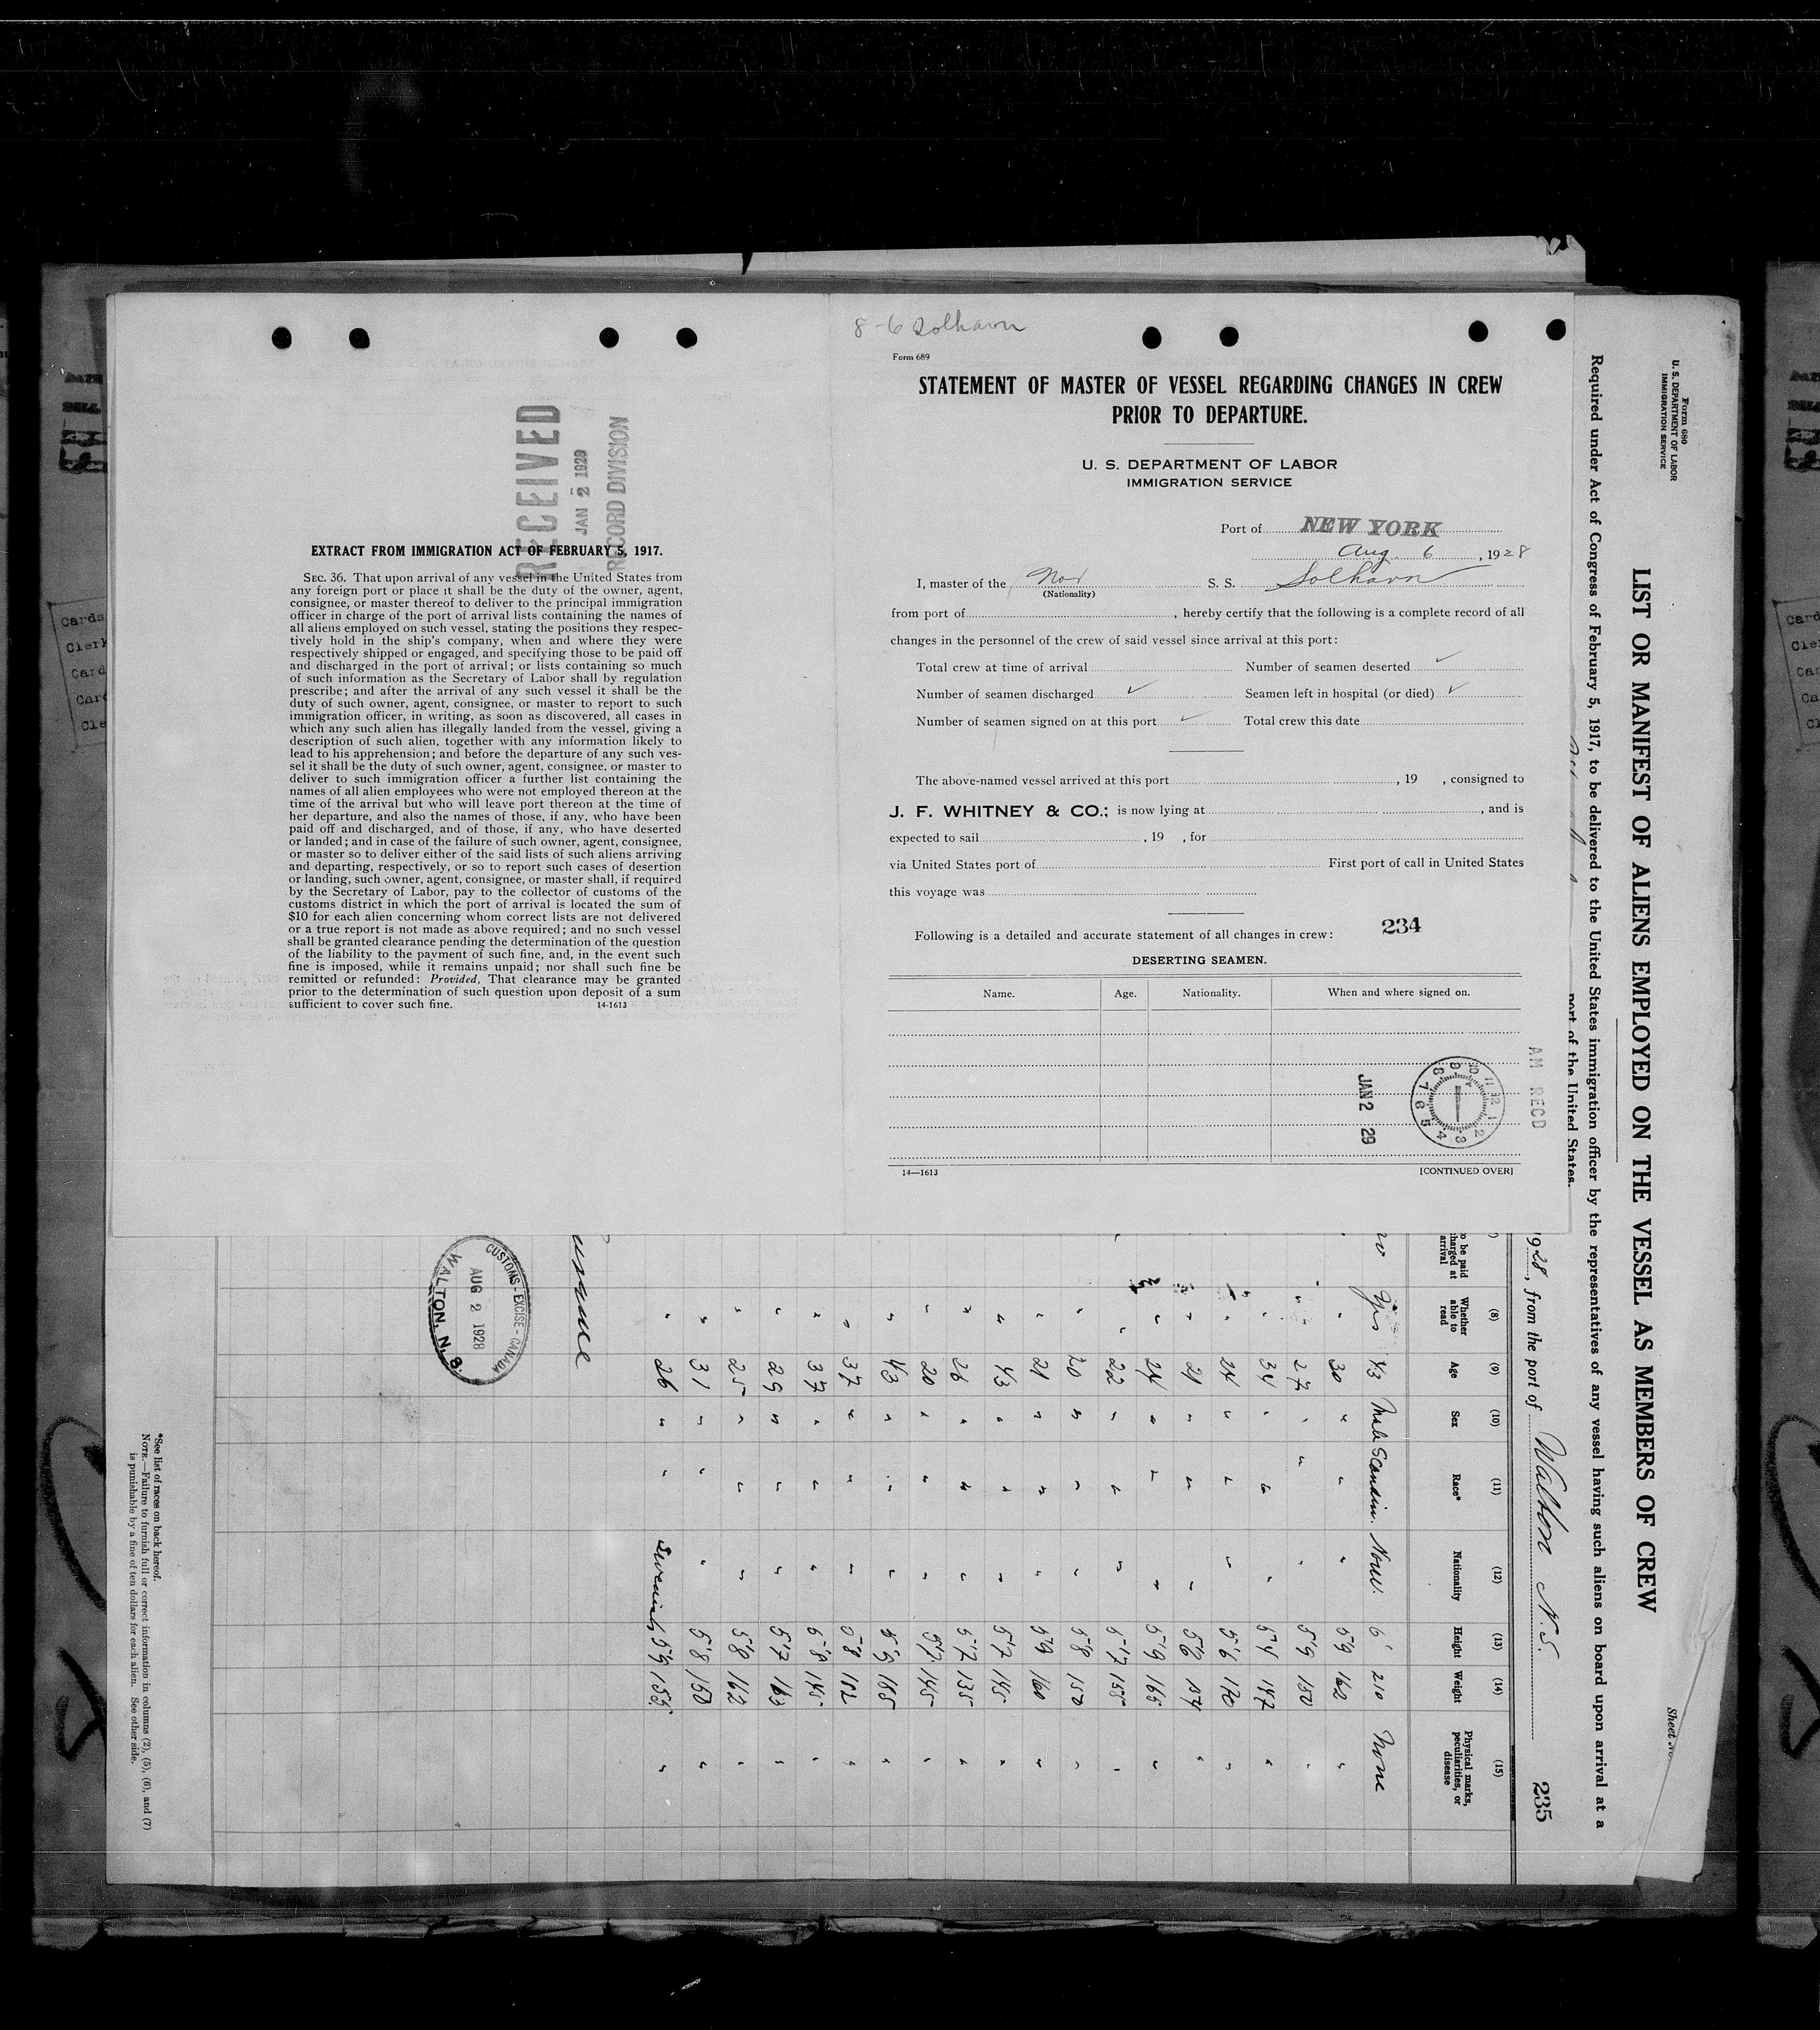 8-6 Solhavn
Form 689
STATEMENT OF MASTER OF VESSEL REGARDING CHANGES IN CREW
PRIOR TO DEPARTURE.
U. S. DEPARTMENT OF LABOR
IMMIGRATION SERVICE
Port of NEW YORK
Aug. 6, 1928
I, master of the Nor S. S. Solhavn
(Nationality)
from port of, hereby certify that the following is a complete record of all
changes in the personnel of the crew of said vessel since arrival at this port:
Total crew at time of arrival Number of seamen deserted ✓
Number of seamen discharged ✓ Seamen left in hospital (or died) ✓
Number of seamen signed on at this port ✓ Total crew this date
The above-named vessel arrived at this port, 19 , consigned to
J. F. WHITNEY & CO.; is now lying at, and is
expected to sail, 19 , for
via United States port of First port of call in United States
this voyage was
234
Following is a detailed and accurate statement of all changes in crew:
DESERTING SEAMEN.
Name. Age. Nationality. When and where signed on.
JAN 2 29
AM RECD
14—1613 [CONTINUED OVER]
RECEIVED
JAN 2 1929
RECORD DIVISION
EXTRACT FROM IMMIGRATION ACT OF FEBRUARY 5, 1917.
SEC. 36. That upon arrival of any vessel in the United States from
any foreign port or place it shall be the duty of the owner, agent,
consignee, or master thereof to deliver to the principal immigration
officer in charge of the port of arrival lists containing the names of
all aliens employed on such vessel, stating the positions they respec-
tively hold in the ship's company, when and where they were
respectively shipped or engaged, and specifying those to be paid off
and discharged in the port of arrival; or lists containing so much
of such information as the Secretary of Labor shall by regulation
prescribe; and after the arrival of any such vessel it shall be the
duty of such owner, agent, consignee, or master to report to such
immigration officer, in writing, as soon as discovered, all cases in
which any such alien has illegally landed from the vessel, giving a
description of such alien, together with any information likely to
lead to his apprehension; and before the departure of any such ves-
sel it shall be the duty of such owner, agent, consignee, or master to
deliver to such immigration officer a further list containing the
names of all alien employees who were not employed thereon at the
time of the arrival but who will leave port thereon at the time of
her departure, and also the names of those, if any, who have been
paid off and discharged, and of those, if any, who have deserted
or landed; and in case of the failure of such owner, agent, consignee,
or master so to deliver either of the said lists of such aliens arriving
and departing, respectively, or so to report such cases of desertion
or landing, such owner, agent, consignee, or master shall, if required
by the Secretary of Labor, pay to the collector of customs of the
customs district in which the port of arrival is located the sum of
$10 for each alien concerning whom correct lists are not delivered
or a true report is not made as above required; and no such vessel
shall be granted clearance pending the determination of the question
of the liability to the payment of such fine, and, in the event such
fine is imposed, while it remains unpaid; nor shall such fine be
remitted or refunded: Provided, That clearance may be granted
prior to the determination of such question upon deposit of a sum
sufficient to cover such fine. 14-1613
Form 680
U. S. DEPARTMENT OF LABOR
IMMIGRATION SERVICE
Sheet No.
LIST OR MANIFEST OF ALIENS EMPLOYED ON THE VESSEL AS MEMBERS OF CREW
Required under Act of Congress of February 5, 1917, to be delivered to the United States immigration officer by the representatives of any vessel having such aliens on board upon arrival at a
port of the United States.
1928, from the port of Walton N.S. 235
(8) (9) (10) (11) (12) (13) (14) (15)
Whether able to read Age Sex Race* Nationality Height Weight Physical marks, peculiarities, or disease
Yes 43 Male Scandin. Norw. 6' 210 None
" 30 " " " 5'9 162 "
" 27 " " " 5'9 150 "
" 34 " " " 147 "
" 24 " " " 5'6 170 "
" 21 " " " 5'6 "
" 24 " " " 5'9 165 "
" 22 " " " 5'7 155 "
" 20 " " " 5'8 150 "
" 21 " " " 5'9 160 "
" 43 " " " 5'7 145 "
" 26 " " " 5'7 135 "
" 20 " " " 5'7 145 "
" 43 " " " 5'9 185 "
" 37 " " " 5'8 "
" 37 " " " 5'8 145 "
" 29 " " " 5'7 163 "
" 25 " " " 5'8 162 "
" 31 " " " 5'8 150 "
" 26 " " 5'9 155 "
CUSTOMS - EXCISE - CANADA
AUG 2 1928
WALTON, N. S.
*See list of races on back hereof.
NOTE.—Failure to furnish full or correct information in columns (2), (5), (6), and (7)
is punishable by a fine of ten dollars for each alien. See other side.